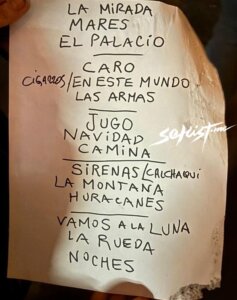 LA MIRADA
MARES
EL PALACIO
CARO
CIGARROS/EN ESTE MUNDO
LAS ARMAS
JUGO
NAVIDAD
CAMINA
SIRENAS/CALCHAQUI
LA MONTANA
HURACANES
VAMOS A LA LUNA
LA RUEDA
NOCHES